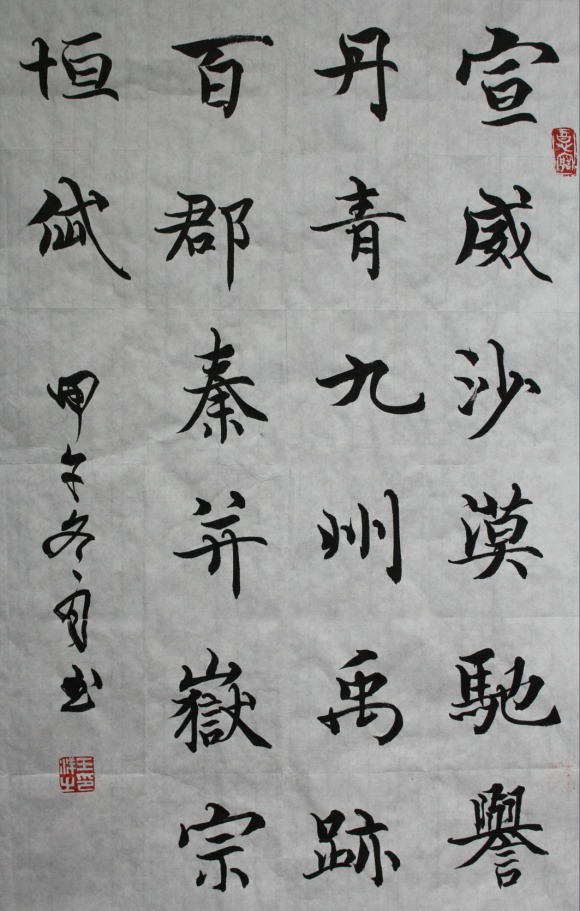 宣威沙漠馳譽
丹青九州禹跡
百郡秦并嶽宗
恒岱
甲午冬月书